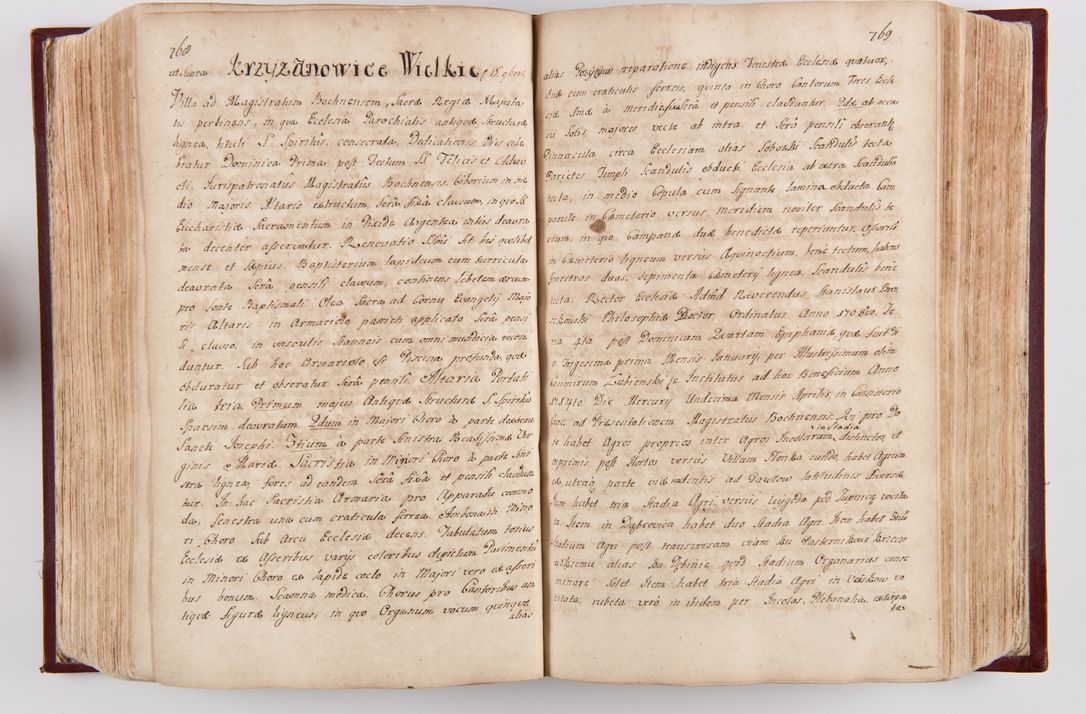 768
ut supra Krzyzanowice Wielkie
Villa ad Magistratum Bochnensem, Sacræ Regiæ Majesta
tis pertinens, in qua Ecclesia Parochialis antiquæ Structuræ
lignea, tituli S. Spiritûs, consecrata, Dedicationis Dies cele
bratur Dominica Prima post Festum SS. Felicis et Adau
cti, Jurispatronatûs Magistratûs Bochnensis. Ciborium in me
dio Majoris Altaris extructum Serâ fixâ clausum, in quo SS.
Eucharistiæ Sacramentum in Pixide Argentea intùs deaura
ta decenter asservatur. Renovatio fit bis quolibet
mense et sæpius. Baptisterium lapideum cum
deaurata Serâ pensili clausum, continens lebetem æreum
pro fonte Baptismali Olea Sacra ad Cornu Evangelij Majo
ris Altaris in Armariolo parieti applicato Serâ pensi
li clauso, in vasculis stanneis cum omni munditia recon
duntur. Sub hoc Armariolo est Piscina profunda, quæ
obduratur et obseratur Serâ pensili. Altaria Portati
lia tria Primum majus Antiquæ Structuræ S. Spiritûs
sparsim deauratum. 2dum in Majori Choro à parte dextera
Sancti Josephi. 3tium à parte sinistra Beatissimæ Vir
ginis Mariæ. Sacristia in Minori Choro à parte Sini
stra lignea, fores ad eandem Serâ fixâ et pensili claudun
tur. In hac Sacristia Armaria pro Apparatu commo
da, fenestra una cum craticula ferrea. Ambona in Mino
ri Choro sub Arcu Ecclesiæ decens. Tabulatum totius
Ecclesiæ ex Asseribus varijs coloribus depictum. Pavimentũ
in Minori Choro ex lapide cocto in Majori vero ex asseri
bus bonum. Scamna modica. Chorus pro Cantoribus an
tiquæ Figuræ ligneus, in quo Organum vocum quinque
alias
769
alias Pozytyw reparatione indigens Fenestræ Ecclesiæ quatuor,
duæ cum craticulis ferreis, quinta in Choro Cantorum. Fores Eccle
siæ una à meridie Serâ et pensili clauduntur. 2dæ ab occa
su Solis, majores vecte ab intra et Serâ pensili obserantʳ
Pinnacula circa Ecclesiam alias Soboski Scandulis tecta
Parietes Templi Scandulis obducti, Ecclesia ab extra Scandulis
tecta, in medio Copula cum Signante lamina obducta. Cam
panile in Cæmeterio versus meridiem noviter Scandulis te
ctum, in quo Campanæ duæ benedictæ reperiuntur. Ossariũ
in Cæmeterio ligneum versùs Aquinoctium, benè tectum, habens
fenestras duas, sepimenta Cæmeterij lignea, Scandulis benè
tecta. Rector Ecclesiæ Admd Reverendus Stanislaus
Philosophiæ Doctor, Ordinatus Anno
post Dominicam Quartam Epiphaniæ, quæ fuit Di
e Trigesima prima Mensis January, per Illustrissimum olim
Casimirum Łubienski Institutus ad hoc Beneficium Anno
Die Mercurij Undecima Mensis Aprilis in Consistorio
Crac. ad Præsentationem Magistratûs Bochnensis. Agri pro Do
te habet Agros proprios inter Agros Incolarum in Stadia distinctos, et
imprimis, post Hortos versùs Villam eundo, habet Agrum
ex utraq parte viæ iacentis ad latitudinis diversæ
Item habet tria Stadia Agri versùs pod Zupnicę voca
ta. Item in Dąbrowica habet duo Stadia Agri. Item habet
Stadium Agri post transversam viam ku Pasternikowi
alias ku quod Stadium Organarius conse
minare solet Item habet tria Stadia Agri in vo
citata; rubeta verò in ibidem per Incolas. Plebanalia extirpa
ta